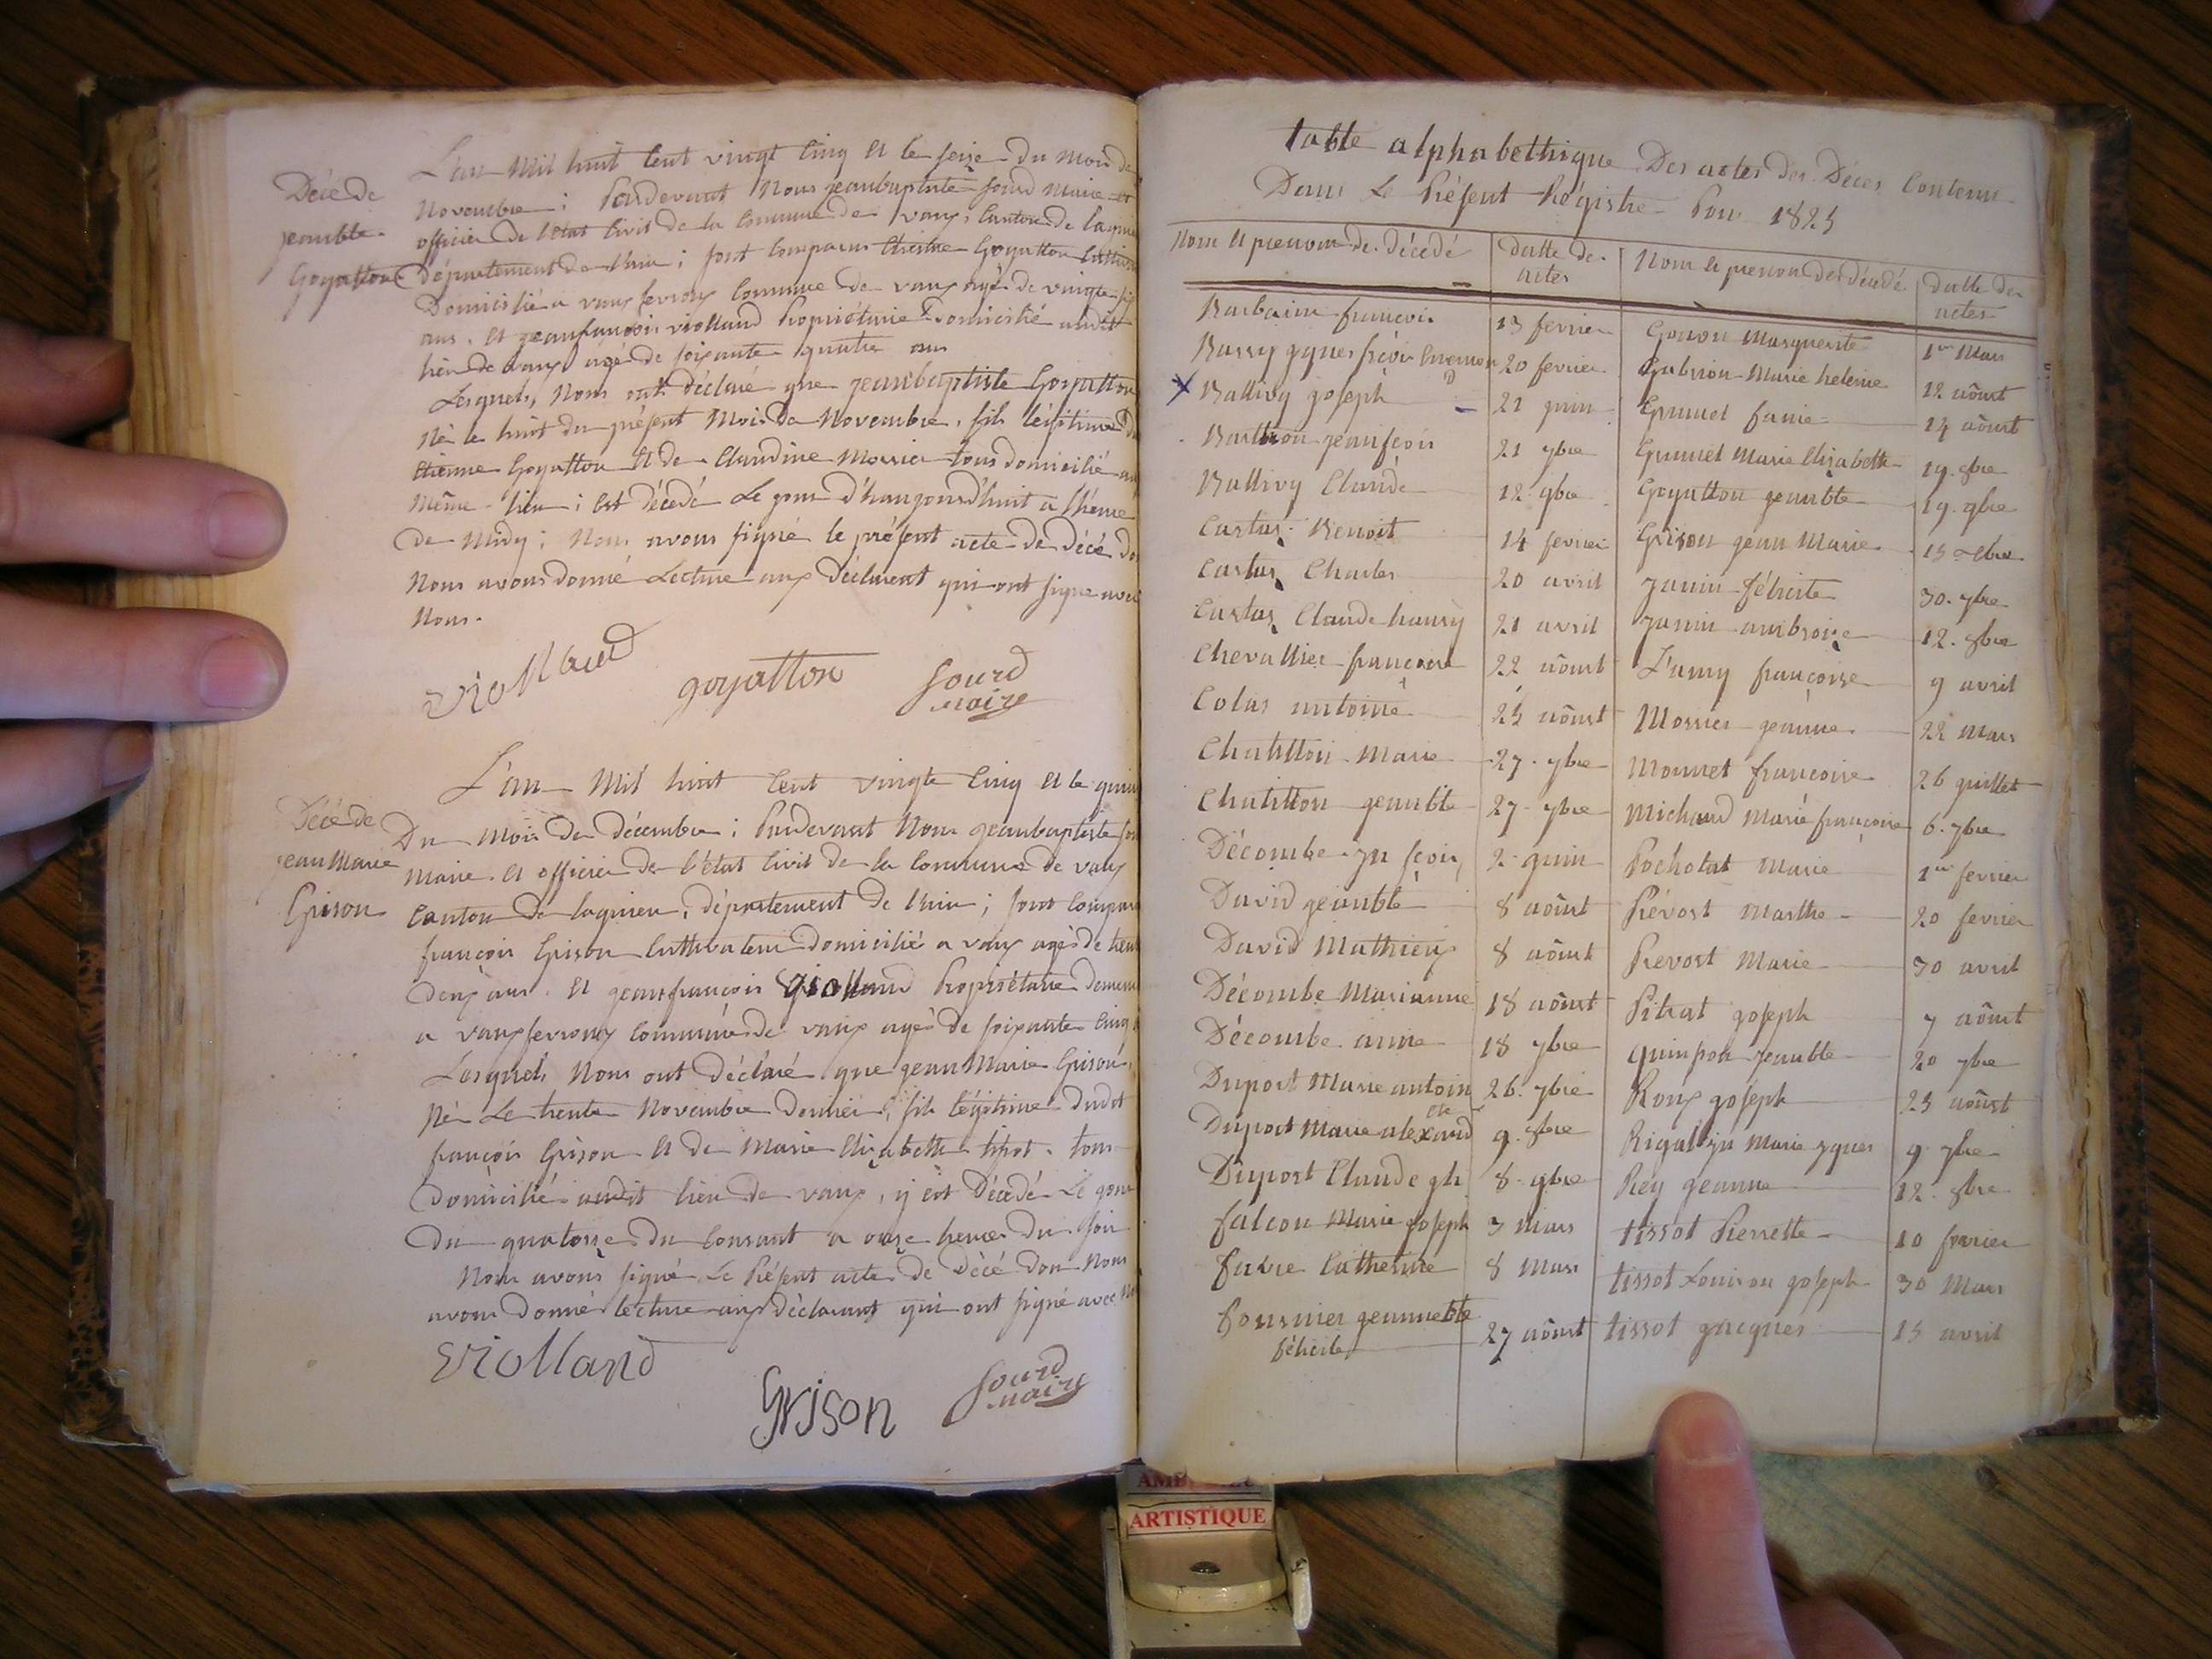 Décé de
jeanbte
Goyatton
L'an Mil huit Cent vingt Cinq Et le seize du Mois de
Novembre ; Pardevant Nous jeanbaptiste Sourd Maire et
officier de l'état Civil de la Commune de vaux, Canton de lagnieu
département de l'ain ; sont Comparus Etienne Goyatton
Domicilié a vauxfevroux Commune de vaux agé de vingte six
ans. Et jeanfrançois violland Propriétaire Domicilié audit
lieu de vaux agé de soixante quatre ans
Lesquels, Nous ont déclaré que jeanbaptiste Goyatton
Né le huit du présent Mois de Novembre, fils légitime
Etienne Goyatton Et de Claudine Morrier tous domicilié au
même lieu ; est décédé Le jour d'haujourd'huit a l'héure
de Midy ; Nous avons signé le présent acte de décé
Nous avons donné Lecture aux Déclarent qui ont signe avec
Nous.
violland goyatton Sourd
maire
Décé de
jean Marie
Grison
L'an Mil huit Cent vingte Cinq Et le
Du mois de décembre ; Pardevant Nous jeanbaptiste
Maire. Et officier de l'état Civil de la Commune de vaux
Canton de lagnieu, département de l'ain ; sont
françois Grison Cultivateur domicilié a vaux agé de
deux ans. Et jeanfrançois violland Propriétaire
a vauxfevroux Commune de vaux agés de soixante Cinq
Lesquels, Nous ont déclaré que jean Marie Grison,
Né Le trente Novembre dernier, fils légitime dudit
françois Grison Et de Marie Elisabette tissot. tous
Domicilié audit lieu de vaux, y est Décédé Le jour
du quatorse du Courant a onze heures du soir
Nous avons signé Le Présent acte de Décé don Nous
avons donné lecture aux déclarant qui ont signé avec
violland
Grison Sourd
maire
table alphabethique Des actes des Décés Contenu
Dans Le Présent Régistre Pour 1825
Nom et prenom de décédé datte des Nom et prenom des décédé datte des
actes actes
Barbarin françois 13 fevrier Gonon Marguerite 1er Mars
20 fevrier Gabrion Marie helene 12 aôust
x Ballivy joseph 21 juin Grumel fanie 14 aôust
Barthion jeanfçois 21 7bre Grumel Marie Elisabeth 19. 8bre
Ballivy Claude 12. 9bre Goyatton jeanbte 19. 9bre
Castas Benoit 14 fevrier Grison jean Marie 15 Xbre
Castas Charles 20 avril Janin félicite 30. 7bre
Castas Claude hausy 21 avril Janin ambroise 12. 8bre
Chevallier françoise 22 aôust L'amy françoise 9 avril
Colas antoine 25 aôust Morrier jeanne 22 Mars
Chatitton Marie 27. 7bre Monnet francoise 26 juillet
Chatitton jeanbte 27. 7bre Michaud Marié françoise 6. 7bre
Décombe jn fçois 2 juin Pochotat Marie 1er fevrier
David jeanbte 8 aôust Prévost Marthe 20 fevrier
David Mathieux 8 aôust Prevost Marie 30 avril
Décombe Marianne 18 aôust Pitrat joseph 7 aôust
Décombe anne 18 7bre quinson jeanbte 20 7bre
Duport Marie antoin 26. 7bre Roux joséph 25 aôust
ete
Duport Marie alexand 9. 8bre Rigal jn Marie ygnes 9. 7bre
Duport Claude ph 8. 9bre Rey jeanne 12. 8bre
falcon Marie joseph 3 Mars tissot Pierrette 10 fevrier
favre Catherine 8 Mars tissot Louison joseph 30 Mars
fournier jeannette
félicité 27 aôust tissot jacques 15 avril
ARTISTIQUE